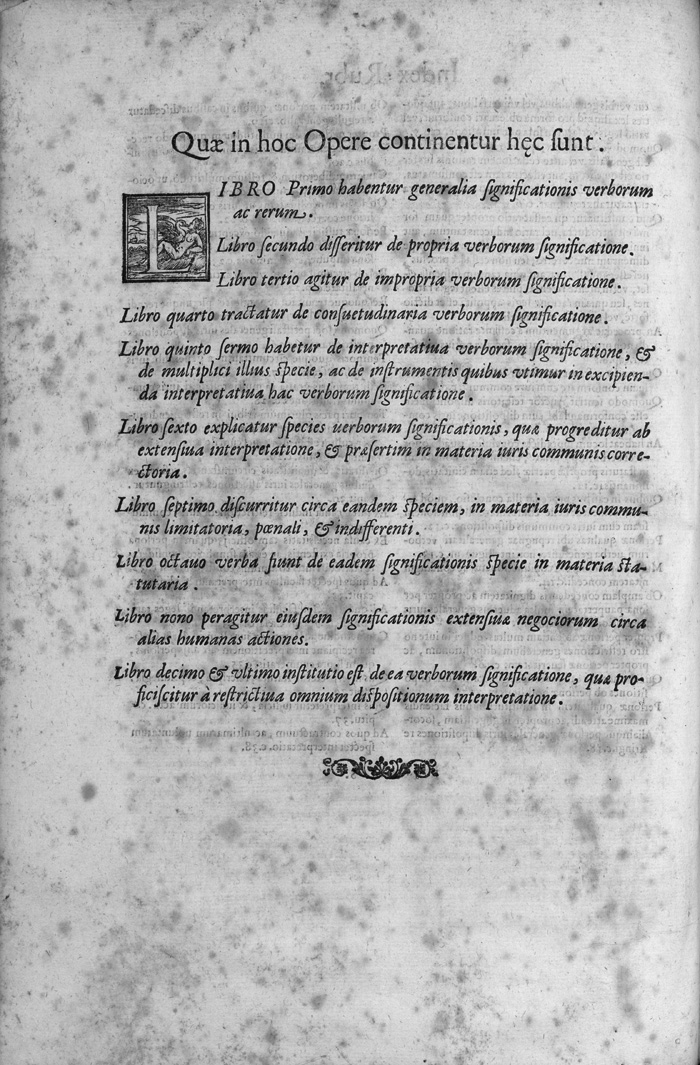 Quæ in hoc Opere continentur hęc ſunt.
LIBRO Primo habentur generalia ſignificationis verborum
ac rerum.
Libro ſecundo diſſeritur de propria verborum ſignificatione.
Libro tertio agitur de impropria verborum ſignificatione.
Libro quarto tractatur de conſuetudinaria verborum ſignificatione.
Libro quinto ſermo habetur de interpretatiua verborum ſignificatione, &
de multiplici illius ſpecie, ac de inſtrumentis quibus vtimur in excipien-
da interpretatiua hac verborum ſignificatione.
Libro ſexto explicatur ſpecies uerborum ſignificationis, quæ progreditur ab
extenſiua interpretatione, & præſertim in materia iuris communis corre-
ctoria.
Libro ſeptimo diſcurritur circa eandem ſpeciem, in materia iuris commu-
nis limitatoria, pœnali, & indifferenti.
Libro octauo verba fiunt de eadem ſignificationis ſpecie in materia ſta-
tutaria.
Libro nono peragitur eiuſdem ſignificationis extenſiuæ negociorum circa
alias humanas actiones.
Libro decimo & vltimo inſtitutio eſt de ea verborum ſignificatione, quæ pro-
ficiſcitur à reſtrictiua omnium diſpoſitionum interpretatione.